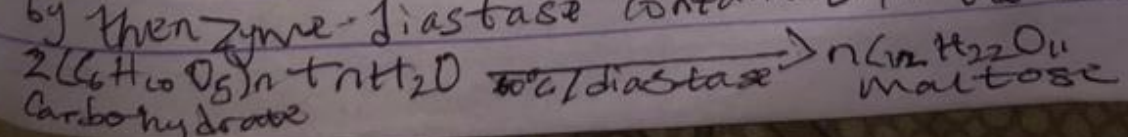 by thenzyme-diastase
2(C6H10O5)n + nH2O 60°C/diastase → nC12H22O11
Carbohydrate maltose